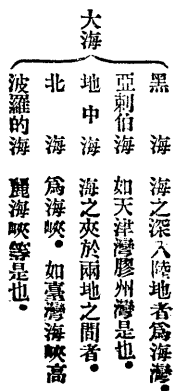 大海
黑海
亞剌伯海
地中海
北海
波羅的海
海之深入陸地者爲海灣。
如天津灣膠州灣是也。
海之夾於兩地之間者。
爲海峽。如臺灣海峽高
麗海峽等是也。